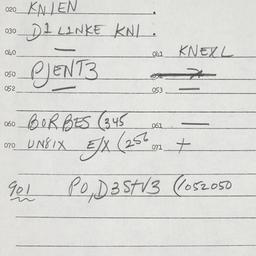 020 KNIEN .
030 D1 LINKE KNI .
040 — 041 KNEXL
050 PJENT3
052 — 053 —
060 BORBES (345 061 —
070 UNSIX E/X (256 071 +
901 PO,D3StV3 (1052050